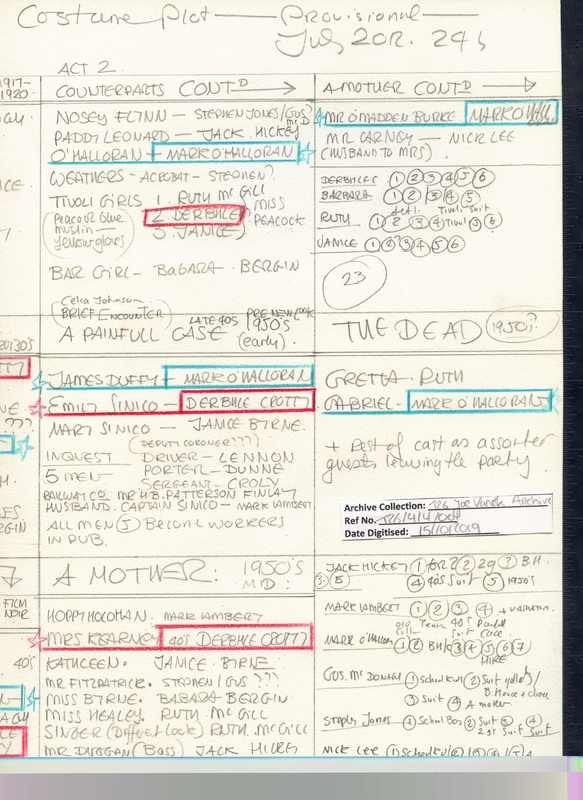 Costume Plot — Provisional —
July 20R. 24s
ACT 2
1917-
1920.
COUNTERPARTS CONTD
NOSEY FLYNN — STEPHEN JONES/GUS McD
PADDY LEONARD — JACK. HICKEY
O'HALLORAN — MARK O'HALLORAN
WEATHERS - ACROBAT - STEPHEN?
TIVOLI GIRLS 1. RUTH Mc GILL
2 DERBHLE
3. JANICE
MISS
PEACOCK
Peacock blue
muslin —
Yellow gloves
BAR GIRL — BABARA BERGIN
Celia Johnson
BRIEF ENCOUNTER
LATE 40s
PRE NEW LOOK
A PAINFULL CASE 1950'S
(early).
JAMES DUFFY — MARK O'HALLORAN
EMILY SINICO — DERBHLE CROTTY
MARY SINICO — JANICE BYRNE.
(DEPUTY CORONER???)
INQUEST DRIVER — LENNON
5 MEN PORTER — DUNNE
SERGEANT — CROLY
RAILWAY CO MR H.B. PATTERSON FINLAY
HUSBAND. CAPTAIN SINICO — MARK LAMBERT
ALL MEN (5) BECOME WORKERS
IN PUB.
A MOTHER: 1950'S
MID:
FILM
NOIR
HOPPY HOLOHAN. MARK LAMBERT
MRS KEARNEY 40'S DERBHLE CROTTY
KATHLEEN. JANICE BYRNE
MR FITZPATRICK. STEPHEN/GUS ???
MISS BYRNE. BABARA BERGIN
MISS HEALEY. RUTH McGILL
SINGER (Diffrent look) RUTH McGILL
MR DUGGAN (Bass) JACK HICKEY
A MOTHER CONTD
MR O'MADDEN BURKE MARK O'HALL
MR CARNEY — NICK LEE
(HUSBAND TO MRS)
DERBHLE 1 2 3 4 5 6
BARBARA 1 2 3 4 5
RUTH 1 2 3 4 Tivoli 5 6
JANICE 1 2 3 4 5 6
23
THE DEAD (1950's?)
GRETTA. RUTH
GABRIEL. MARK O'HALLORAN
+ Rest of cast as assorted
guests leaving the party.
Archive Collection: JS26 Joe Vanek Archive
Ref No.
Date Digitised: 15/10/2019
JACK HICKEY 1 for 2 2 3 B.H.
4 40s Suit 5 1950's
MARK LAMBERT 1 2 3 4
MARK O'HALLORAN 1 2 B/H 3 4 5 6 7
HIRE
GUS. Mc DONAGH 1 Schoolboy 2 Suit yellow/
3 Suit 4 A mother
Stephen Jones 1 School Boy 2 Suit 3 4 Suit
NICK LEE